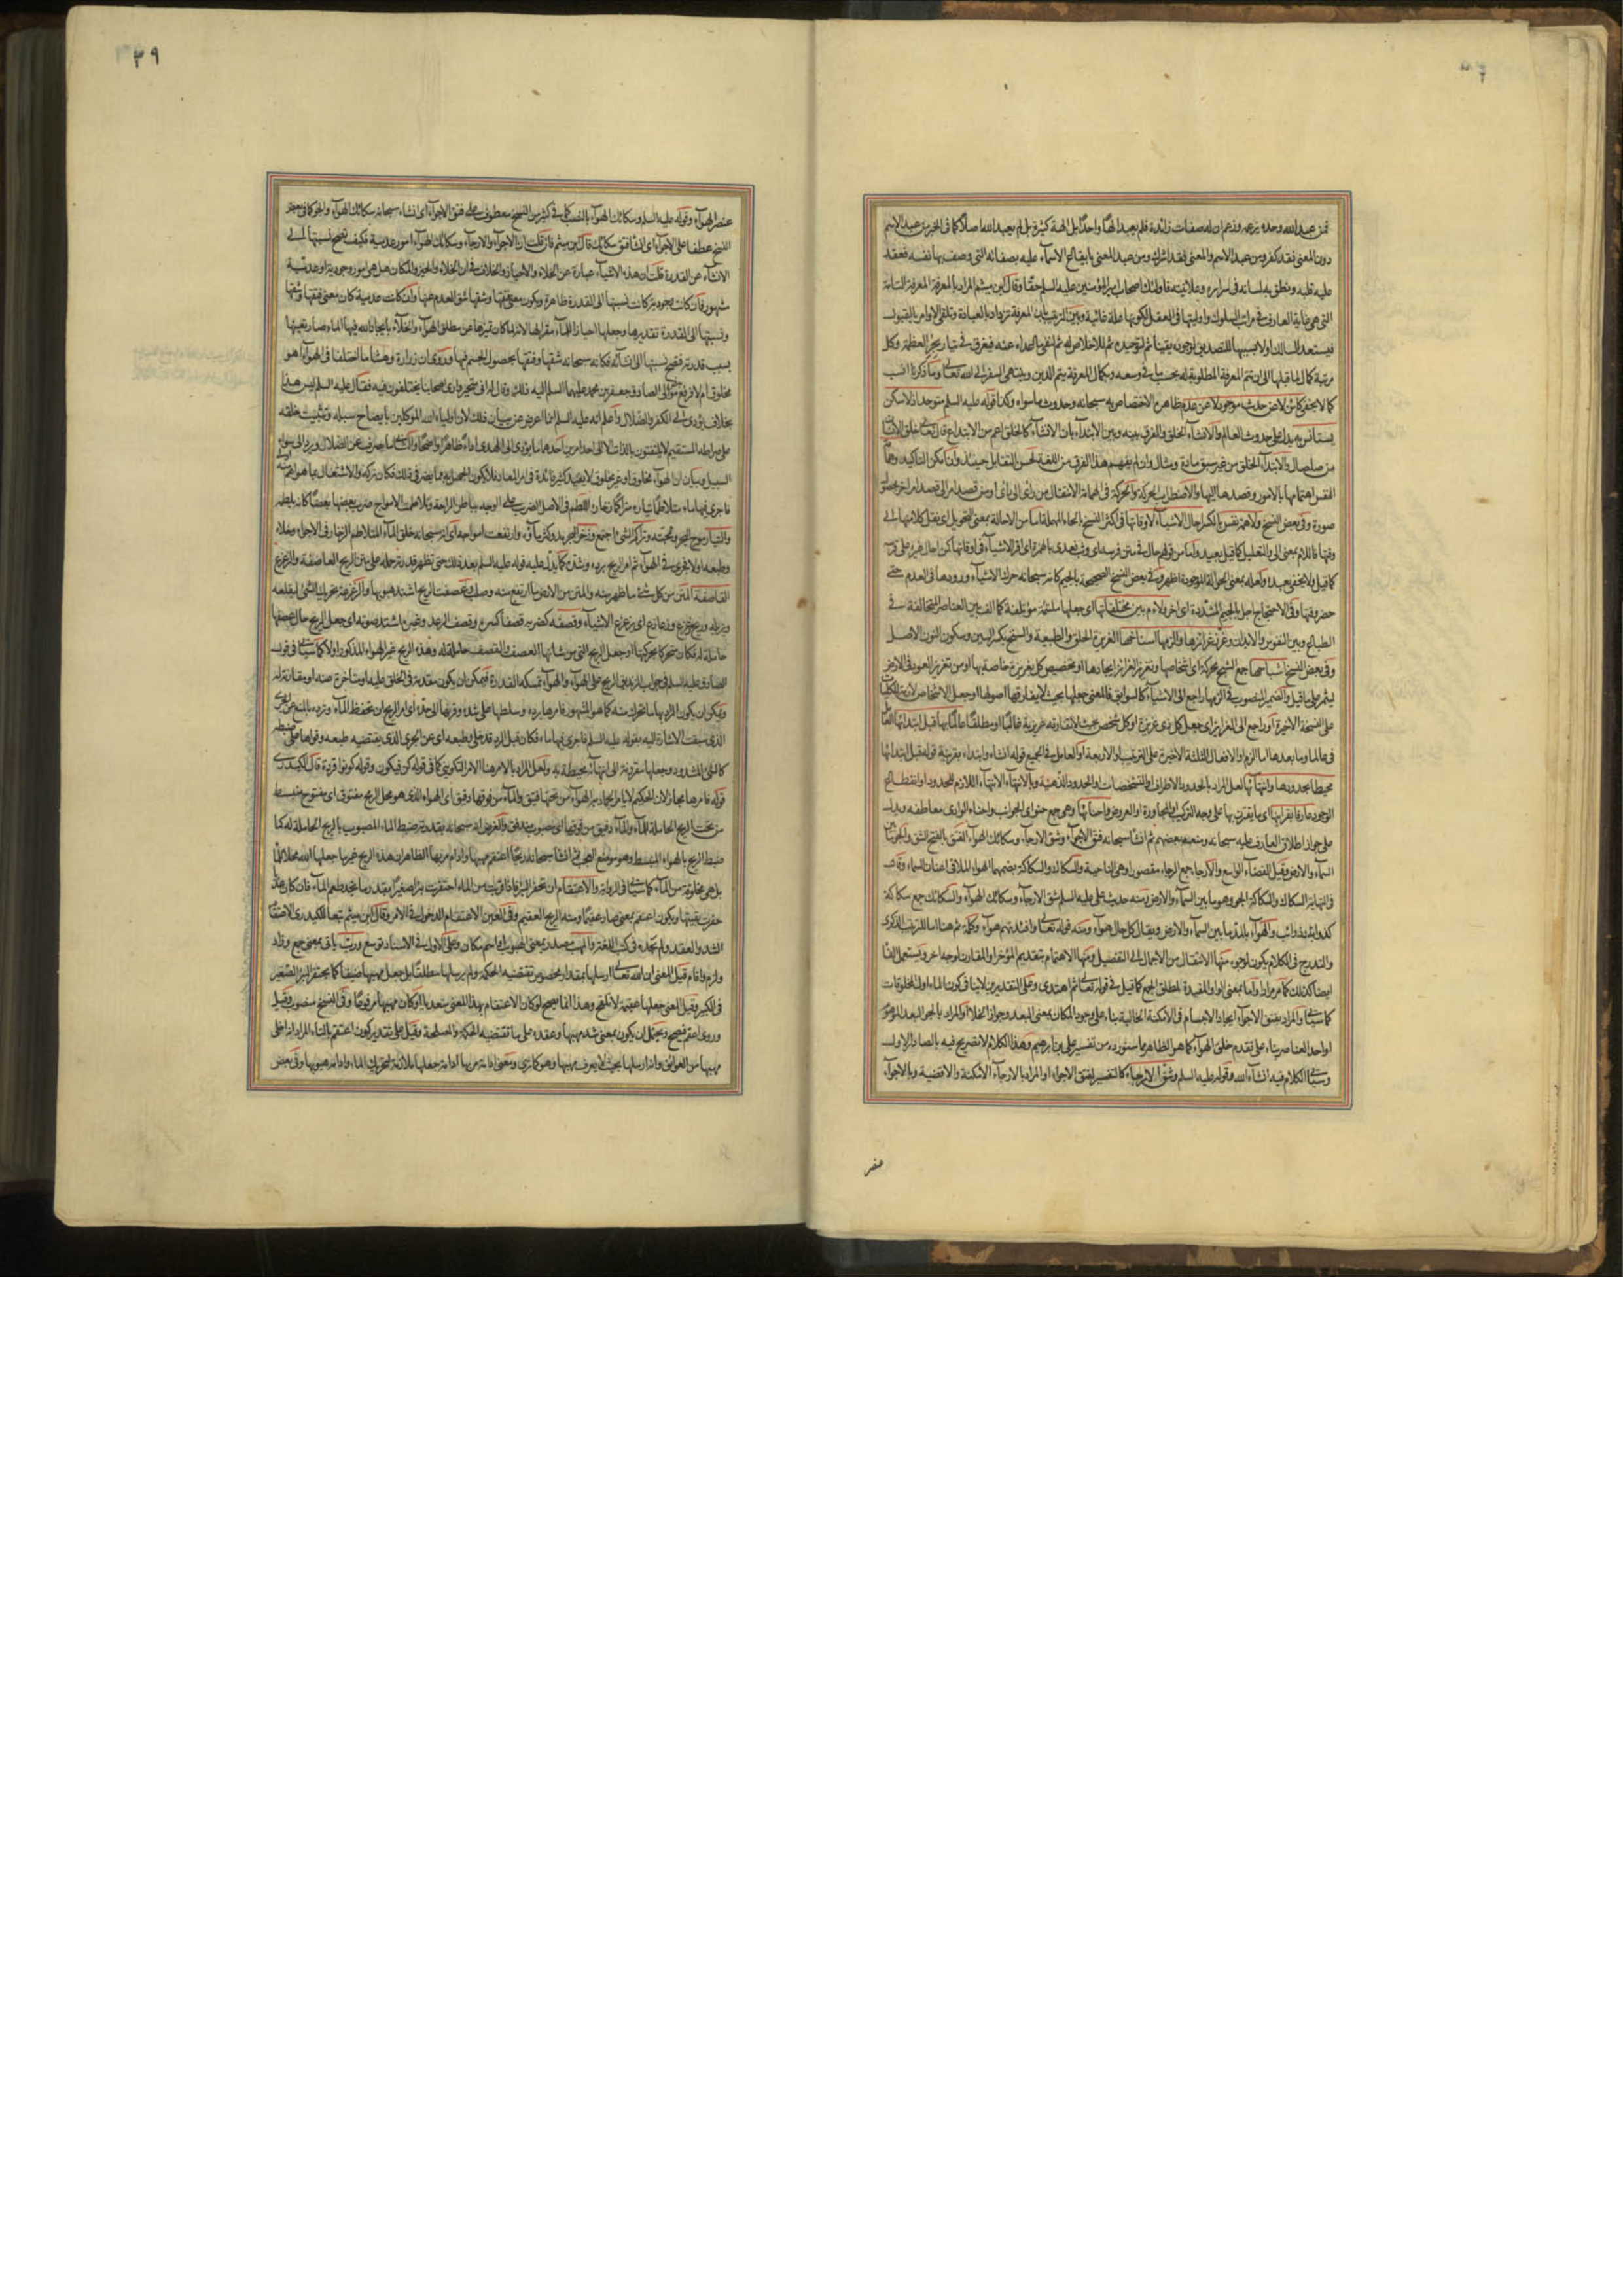 فمن عبد الله وحده بزعمه وزعم ان له صفات زائدة فلم يعبد الها واحدا بل الهة كثيرة بل لم يعبد الله اصلا كما فى الخبر من عبد الاسم
دون المعنى فقد كفر ومن عبد الاسم والمعنى فقد اشرك ومن عبد المعنى بايقاع الاسماء عليه بصفاته التى وصف بها نفسه فعقد
عليه قلبه ونطق به لسانه فى سرايره وعلانيته فاولئك اصحاب امير المؤمنين عليه السلم حقا وقال ابن ميثم المراد بالمعرفة المعرفة التامة
التى هى غاية العارف فى مراتب السلوك واوليتها فى العقل لكونها علة غائية وبين الترتيب بان المعرفة تزداد بالعبادة وتلقى الاوامر بالقبول
مرتبة كمال لما قبلها الى ان تتم المعرفة المطلوبة له بحسب ما فى وسعه وبكمال المعرفة يتم الدين وينتهى السفر الى الله تعالى وما ذكرنا انسب
كما لا يخفى كائن لا عن حدث موجود لا عن عدم ظاهره الاختصاص به سبحانه وحدوث ما سواه وكذا قوله عليه السلم متوحد اذ لا سكن
يستانس به يدل على حدوث العالم والانشاء الخلق والفرق بينه وبين الابتداء بان الانشاء كالخلق اعم من الابتداع قال تعالى خلق الانسان
من صلصال والابتداء الخلق من غير سبق مادة ومثال وان لم يفهم هذا الفرق من اللغة لحسن التقابل حينئذ وان امكن التاكيد وهمامة
النفس اهتمامها بالامور وقصدها اليها والاضطراب الحركة والحركة فى الهمامة الانتقال من راى الى راى او من قصد امر الى قصد امر اخر بحصول
صورة وفى بعض النسخ ولا همة نفس بالكسر احال الاشياء لاوقاتها فى اكثر النسخ بالحاء المهملة اما من الاحالة بمعنى التحويل اى نقل كلا منها الى
وقتها فاللام بمعنى الى والتعليل كما قيل بعيد واما من قولهم حال فى متن فرسه اى وثب فعدى بالهمزة اى اقر الاشياء فى اوقاتها كمن احال غيره على فرسه
كما قيل ولا يخفى بعده ولعله بمعنى الحوالة الموجودة اظهر وفى بعض النسخ الصحيحة بالجيم كانه سبحانه حرك الاشياء ورددها فى العدم حتى
حضر وقتها وفى الاحتجاج اجل بالجيم المشددة اى اخر ولاءم بين مختلفاتها اى جعلها ملتئمة مؤتلفة كما الف بين العناصر المتخالفة فى
الطباع وبين النفوس والابدان وغرز غرائزها والزمها اسناخها الغريزة الخلق والطبيعة والسنخ بكسر السين وسكون النون الاصل
وفى بعض النسخ اشباحها جمع الشبح محركة اى اشخاصها وتغريز الغرائز ايجادها او تخصيص كل بغريزة خاصة بها او من تغريز العود فى الارض
ليثمر على ما قيل والضمير المنصوب فى الزمها راجع الى الاشياء كالسوابق فالمعنى جعلها بحيث لا يفارقها اصولها او جعل الاشخاص لازمة للكليات
على النسخة الاخيرة او راجع الى الغرائز اى جعل كل ذى غريزة او كل شخص بحيث لا تفارقه غريزته غالبا او مطلقا عالما بها قبل ابتدائها
محيطا بحدودها وانتهائها لعل المراد بالحدود الاطراف او التشخصات او الحدود الذهنية وبالانتهاء الانتهاء اللازم للحدود او انقطاع
الوجود عارفا بقرائنها اى ما يقترن بها على وجه التركيب او المجاورة او العروض واحنائها وهى جمع حنو اى الجوانب واحناء الوادى معاطفه ويدل
على جواز اطلاق العارف عليه سبحانه ومنعه بعضهم ثم انشا سبحانه فتق الاجواء وشق الارجاء وسكائك الهواء الفتق بالفتح الشق والجو ما بين
السماء والارض وقيل الفضاء الواسع والارجاء جمع الرجا مقصورا وهى الناحية والسكاك والسكاكة بضمهما الهواء الملاقى اعنان السماء وقال
فى النهاية السكاك والسكاكة الجو وهو ما بين السماء والارض ومنه حديث على عليه السلم شق الارجاء وسكائك الهواء والسكائك جمع سكاكة
كذوابة وذوائب والهواء بالمد ما بين السماء والارض ويقال كل خال هواء ومنه قوله تعالى وافئدتهم هواء وكلمة ثم هنا اما للترتيب الذكرى
والتدرج فى الكلام يكون لوجوه منها الانتقال من الاجمال الى التفصيل ومنها الاهتمام بتقديم المؤخر او المقارن لوجه اخر ويستعمل الفا
ايضا كذلك كما مر مرارا واما بمعنى الواو المفيدة لمطلق الجمع كما قيل فى قوله تعالى ثم اهتدى وعلى التقديرين لا ينافى كون الماء اول المخلوقات
كما سياتى والمراد بفتق الاجواء ايجاد الاجسام فى الامكنة الخالية بناء على وجود المكان بمعنى البعد وجواز الخلاء او المراد بالجو البعد الموهوم
او احد العناصر بناء على تقدم خلق الهواء كما هو الظاهر مما سنورده من تفسير على بن ابرهيم وهذا الكلام لا تصريح فيه بالصادر الاول
وسياتى الكلام فيه انشاء الله وقوله عليه السلم وشق الارجاء كالتفسير لفتق الاجواء او المراد بالارجاء الامكنة والافضية وبالاجواء
عنصر
٣٩
عنصر الهواء وقوله عليه السلم وسكائك الهواء بالنصب كما فى كثير من النسخ معطوف على فتق الاجواء اى انشاء سبحانه سكائك الهواء والجر كما فى بعض
النسخ عطفا على الاجواء اى انشا فتق سكائك قال ابن ميثم فان قلت ان الاجواء والارجاء وسكائك الهواء امور عدمية فكيف تصح نسبتها الى
الانشاء عن القدرة قلت ان هذه الاشياء عبارة عن الخلاء والاحياز والخلاف فى ان الخلاء والحيز والمكان هل هى امور وجودية او عدمية
مشهور فان كانت وجودية كانت نسبتها الى القدرة ظاهرة ويكون معنى فتقها وشقها شق العدم عنها وان كانت عدمية كان معنى فتقها وشقها
ونسبتها الى القدرة تقديرها وجعلها احيازا للماء مقرا لها لانه لما كان تميزها عن مطلق الهواء والخلاء بايجاد الله فيها الماء صار تعينها
بسبب قدرته فتصح نسبتها الى انشائه فكانه سبحانه شقها وفتقها بحصول الجسم فيها وروى ان زرارة وهشاما اختلفا فى الهواء اهو
مخلوق ام لا فرفع بعض موالى الصادق جعفر بن محمد عليهما السلم اليه ذلك وقال له انى متحير وارى اصحابنا يختلفون فيه فقال عليه السلم ليس هذا
بخلاف يؤدى الى الكفر والضلال واعلم انه عليه السلم انما اعرض عن بيان ذلك لان اولياء الله الموكلين بايضاح سبله وتثبيت خلقه
على صراطه المستقيم لا يلتفتون بالذات الا الى احد امرين احدهما ما يؤدى الى الهدى اداء ظاهرا واضحا والثانى ما يصرف عن الضلال ويرد الى سواء
السبيل وبيان ان الهواء مخلوق او غير مخلوق لا يفيد كثير فائدة فى امر المعاد فلا يكون الجهل به مما يضر فى ذلك فكان تركه والاشتغال بما هو اهم منه
فاجرى فيها ماء متلاطما تياره متراكما زخاره اللطم فى الاصل الضرب على الوجه بباطن الراحة وتلاطمت الامواج ضرب بعضها بعضا كانه يلطمه
والتيار موج البحر ولجته وتراكم الشئ اجتمع وزخر البحر مد وكثر ماؤه وارتفعت امواجه اى انه سبحانه خلق الماء المتلاطم الزخار فى الاجواء وخلاه
وطبعه اولا فجرى فى الهواء ثم امر الريح برده وشده كما يدل عليه قوله عليه السلم بعد ذلك حتى تظهر قدرته حمله على متن الريح العاصفة والزعزع
القاصفة المتن من كل شئ ما ظهر منه والمتن من الارض ما ارتفع منه وصلب وعصفت الريح اشتد هبوبها والزعزعة تحريك الشئ ليقلعه
ويزيله وريح زعزع وزعازع اى يزعزع الاشياء وقصفه كضربه قصفا كسره وقصف الرعد وغيره اشتد صوته اى جعل الريح حال عصفها
حاملة له فكان متحركا بحركتها او جعل الريح التى من شانها العصف والقصف حاملة له وهذه الريح غير الهواء المذكور اولا كما سياتى فى قول
الصادق عليه السلم فى جواب الزنديق الريح على الهواء والهواء تمسكه القدرة فيمكن ان يكون مقدمة فى الخلق عليه او متاخرة عنه او مقارنة له
ويمكن ان يكون المراد بها ما تحرك منه كما هو المشهور فامرها برده وسلطها على شده وقرنها الى حده اى امر الريح ان تحفظ الماء وترده بالمنع عن الجرى
الذى سبقت الاشارة اليه بقوله عليه السلم فاجرى فيها ماء فكان قبل الرد قد خلى وطبعه اى عن الجرى الذى يقتضيه طبعه وقواها على ضبطه
كالشئ المشدود وجعلها مقرونة الى انتهائه محيطة به ولعل المراد بالامر هنا الامر التكوينى كما فى قوله كن فيكون وقوله كونوا قردة قال الكيدرى
قوله فامرها مجاز لان الحكيم لا يامر الجماد به الهواء من تحتها فتيق والماء من فوقها دفيق اى الهواء الذى هو محل الريح مفتوق اى مفتوح منبسط
من تحت الريح الحاملة للماء والماء دفيق من فوقها اى مصبوب مندفق والغرض انه سبحانه بقدرته ضبط الماء المصبوب بالريح الحاملة له كما
ضبط الريح بالهواء المنبسط وهو موضع العجب ثم انشا سبحانه ريحا اعتقم مهبها وادام مربها الظاهر ان هذه الريح غير ما جعلها الله محلا للماء
بل هى مخلوقة من الماء كما سياتى فى الرواية والاعتقام ان تحفر البئر فاذا قربت من الماء احتفرت بئرا صغيرا بقدر ما تجد طعم الماء فان كان عذبا
حفرت بقيتها ويكون اعتقم بمعنى صار عقيما ومنه الريح العقيم وفى العين الاعتقام الدخول فى الامر وقال ابن ميثم تبعا للكيدرى الاعتقام
الشد والعقد ولم نجده فى كتب اللغة والمهب مصدر بمعنى الهبوب او اسم مكان وعلى الاول فى الاسناد توسع ورب ياتى بمعنى جمع وزاد
ولزم واقام قيل المعنى ان الله تعالى ارسلها بمقدار مخصوص تقتضيه الحكمة ولم يرسلها مطلقا بل جعل مهبها ضيقا كما يحتفر البئر الصغير
فى الكبير وقيل المعنى جعلها عقيمة لا تلقح وهذا انما يصح لو كان الاعتقام بهذا المعنى متعديا او كان مهبها مرفوعا وفى النسخ منصوب وقيل
وروى اعقم فيصح ويحتمل ان يكون بمعنى شد مهبها وعقده على ما تقتضيه الحكمة والمصلحة وقيل على تقدير كون اعتقم بالتاء المراد انه اخلى
مهبها من العوائق وانه ارسلها بحيث لا يعرف مهبها وهو كما ترى ومعنى ادامة مربها ادامة جعلها ملازمة لتحريك الماء وادامة هبوبها وفى بعض